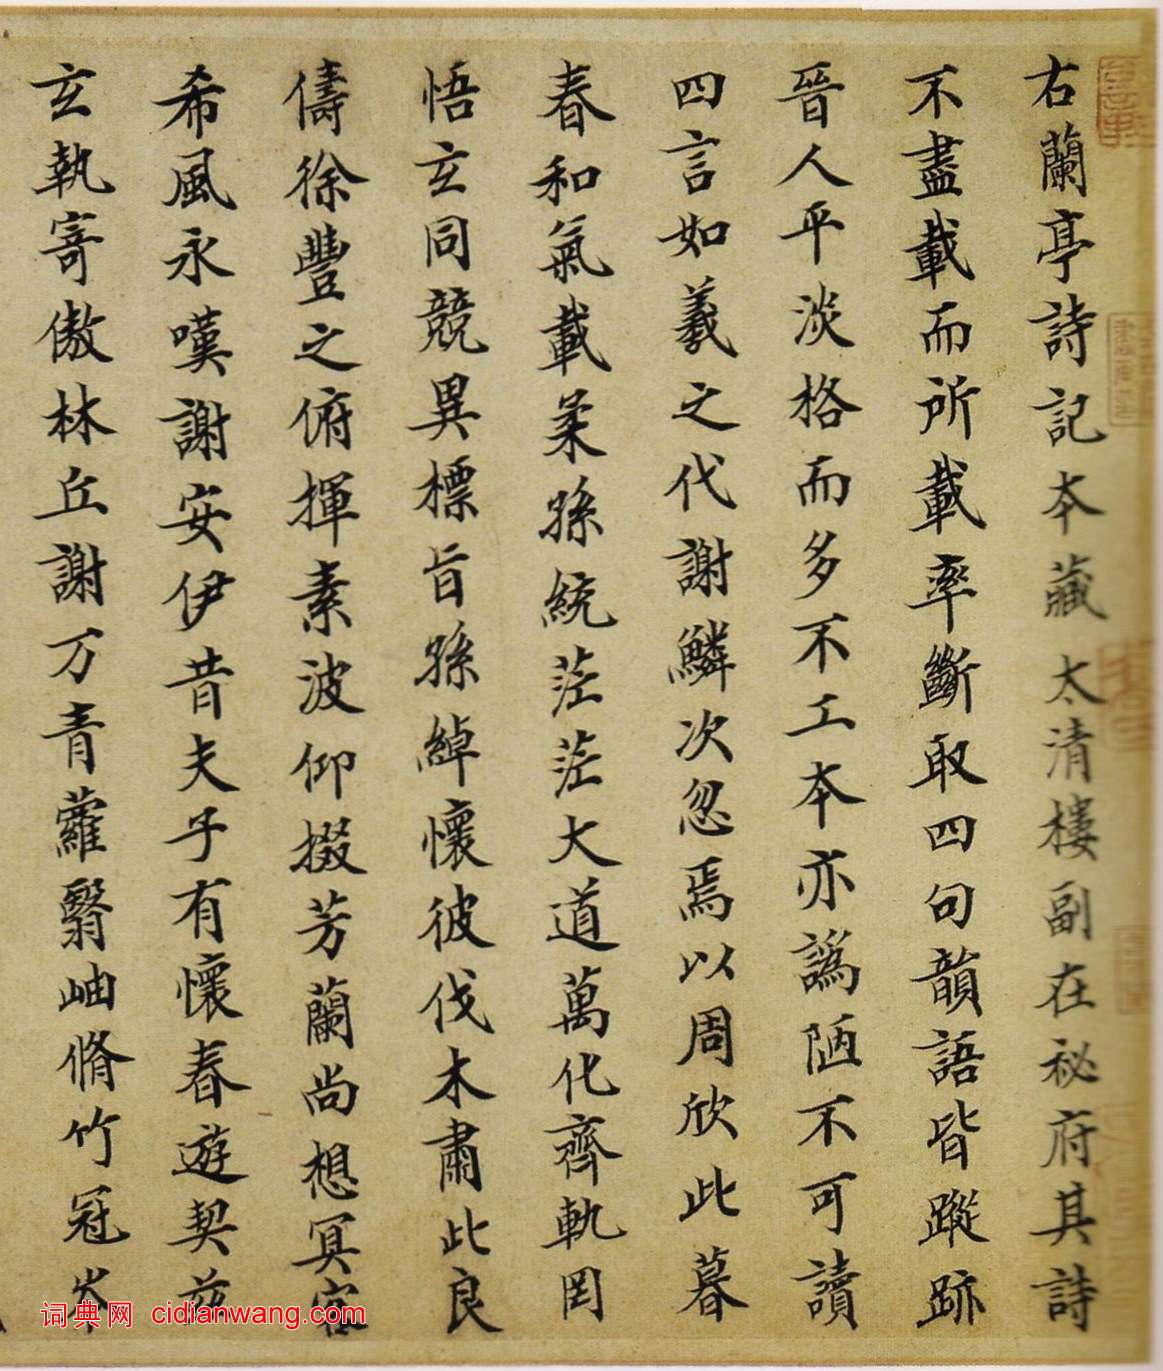 右蘭亭詩記本藏太清樓副在祕府其詩
不盡載而所載率斷取四句韻語皆蹤跡
晉人平淡格而多不工本亦譌陋不可讀
四言如羲之代謝鱗次忽焉以周欣此暮
春和氣載柔孫統茫茫大道萬化齊軌罔
悟玄同競異標旨孫綽懷彼伐木肅此良
儔徐豐之俯揮素波仰掇芳蘭尚想冥客
希風永嘆謝安伊昔夫子有懷春遊契茲
玄執寄傲林丘謝万青蘿翳岫脩竹冠岑
词典网 cidianwang.com